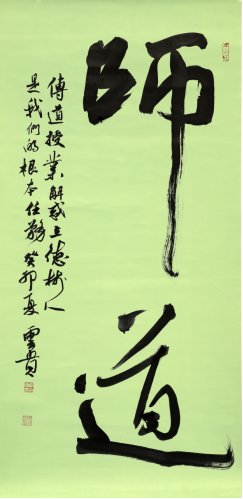 師道
傳道授業解惑立德樹人
是我們的根本任務 癸卯夏 雲貴